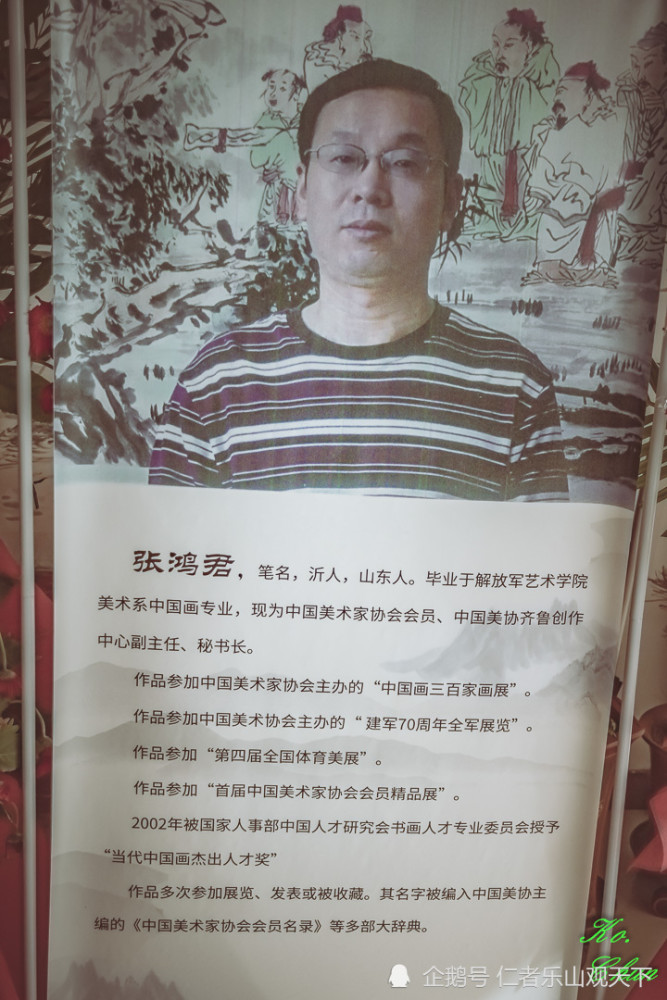 张鸿君，笔名，沂人，山东人。毕业于解放军艺术学院
美术系中国画专业，现为中国美术家协会会员、中国美协齐鲁创作
中心副主任、秘书长。
作品参加中国美术家协会主办的“中国画三百家画展”。
作品参加中国美术协会主办的“ 建军70周年全军展览”。
作品参加“第四届全国体育美展”。
作品参加“首届中国美术家协会会员精品展”。
2002年被国家人事部中国人才研究会书画人才专业委员会授予
“当代中国画杰出人才奖”
作品多次参加展览、发表或被收藏。其名字被编入中国美协主
编的《中国美术家协会会员名录》等多部大辞典。
Ko.
Chin
企鹅号 仁者乐山观天下